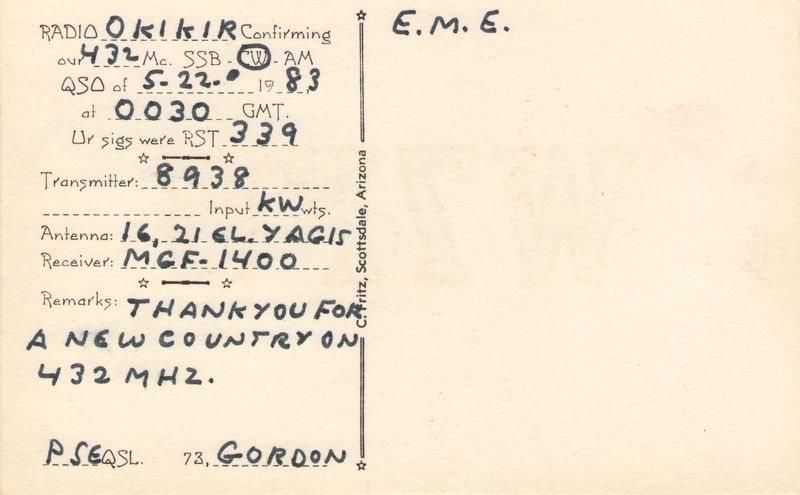 RADIO OK1K1R Confirming
our 432 Mc. SSB - CW - AM
QSO of 5-22- 1983
at 0030 GMT.
Ur sigs were RST 339
Transmitter: 8938
Input KW wts.
Antenna: 16, 21 EL. YAGIS
Receiver: MGF-1400
Remarks: THANK YOU FOR
A NEW COUNTRY ON
432 MHZ.
PSE QSL. 73, GORDON
C. Fritz, Scottsdale, Arizona
E.M.E.